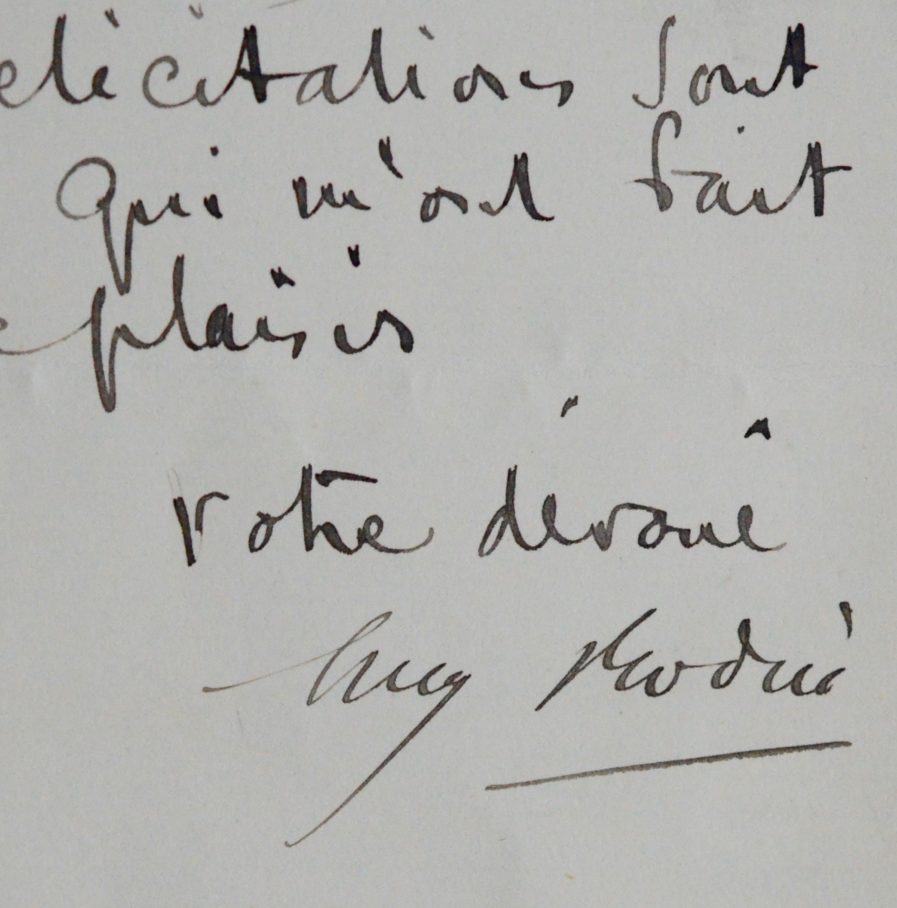 elicitations sont
qui m'ont fait
e plaisir
votre dévoué
Aug Rodin